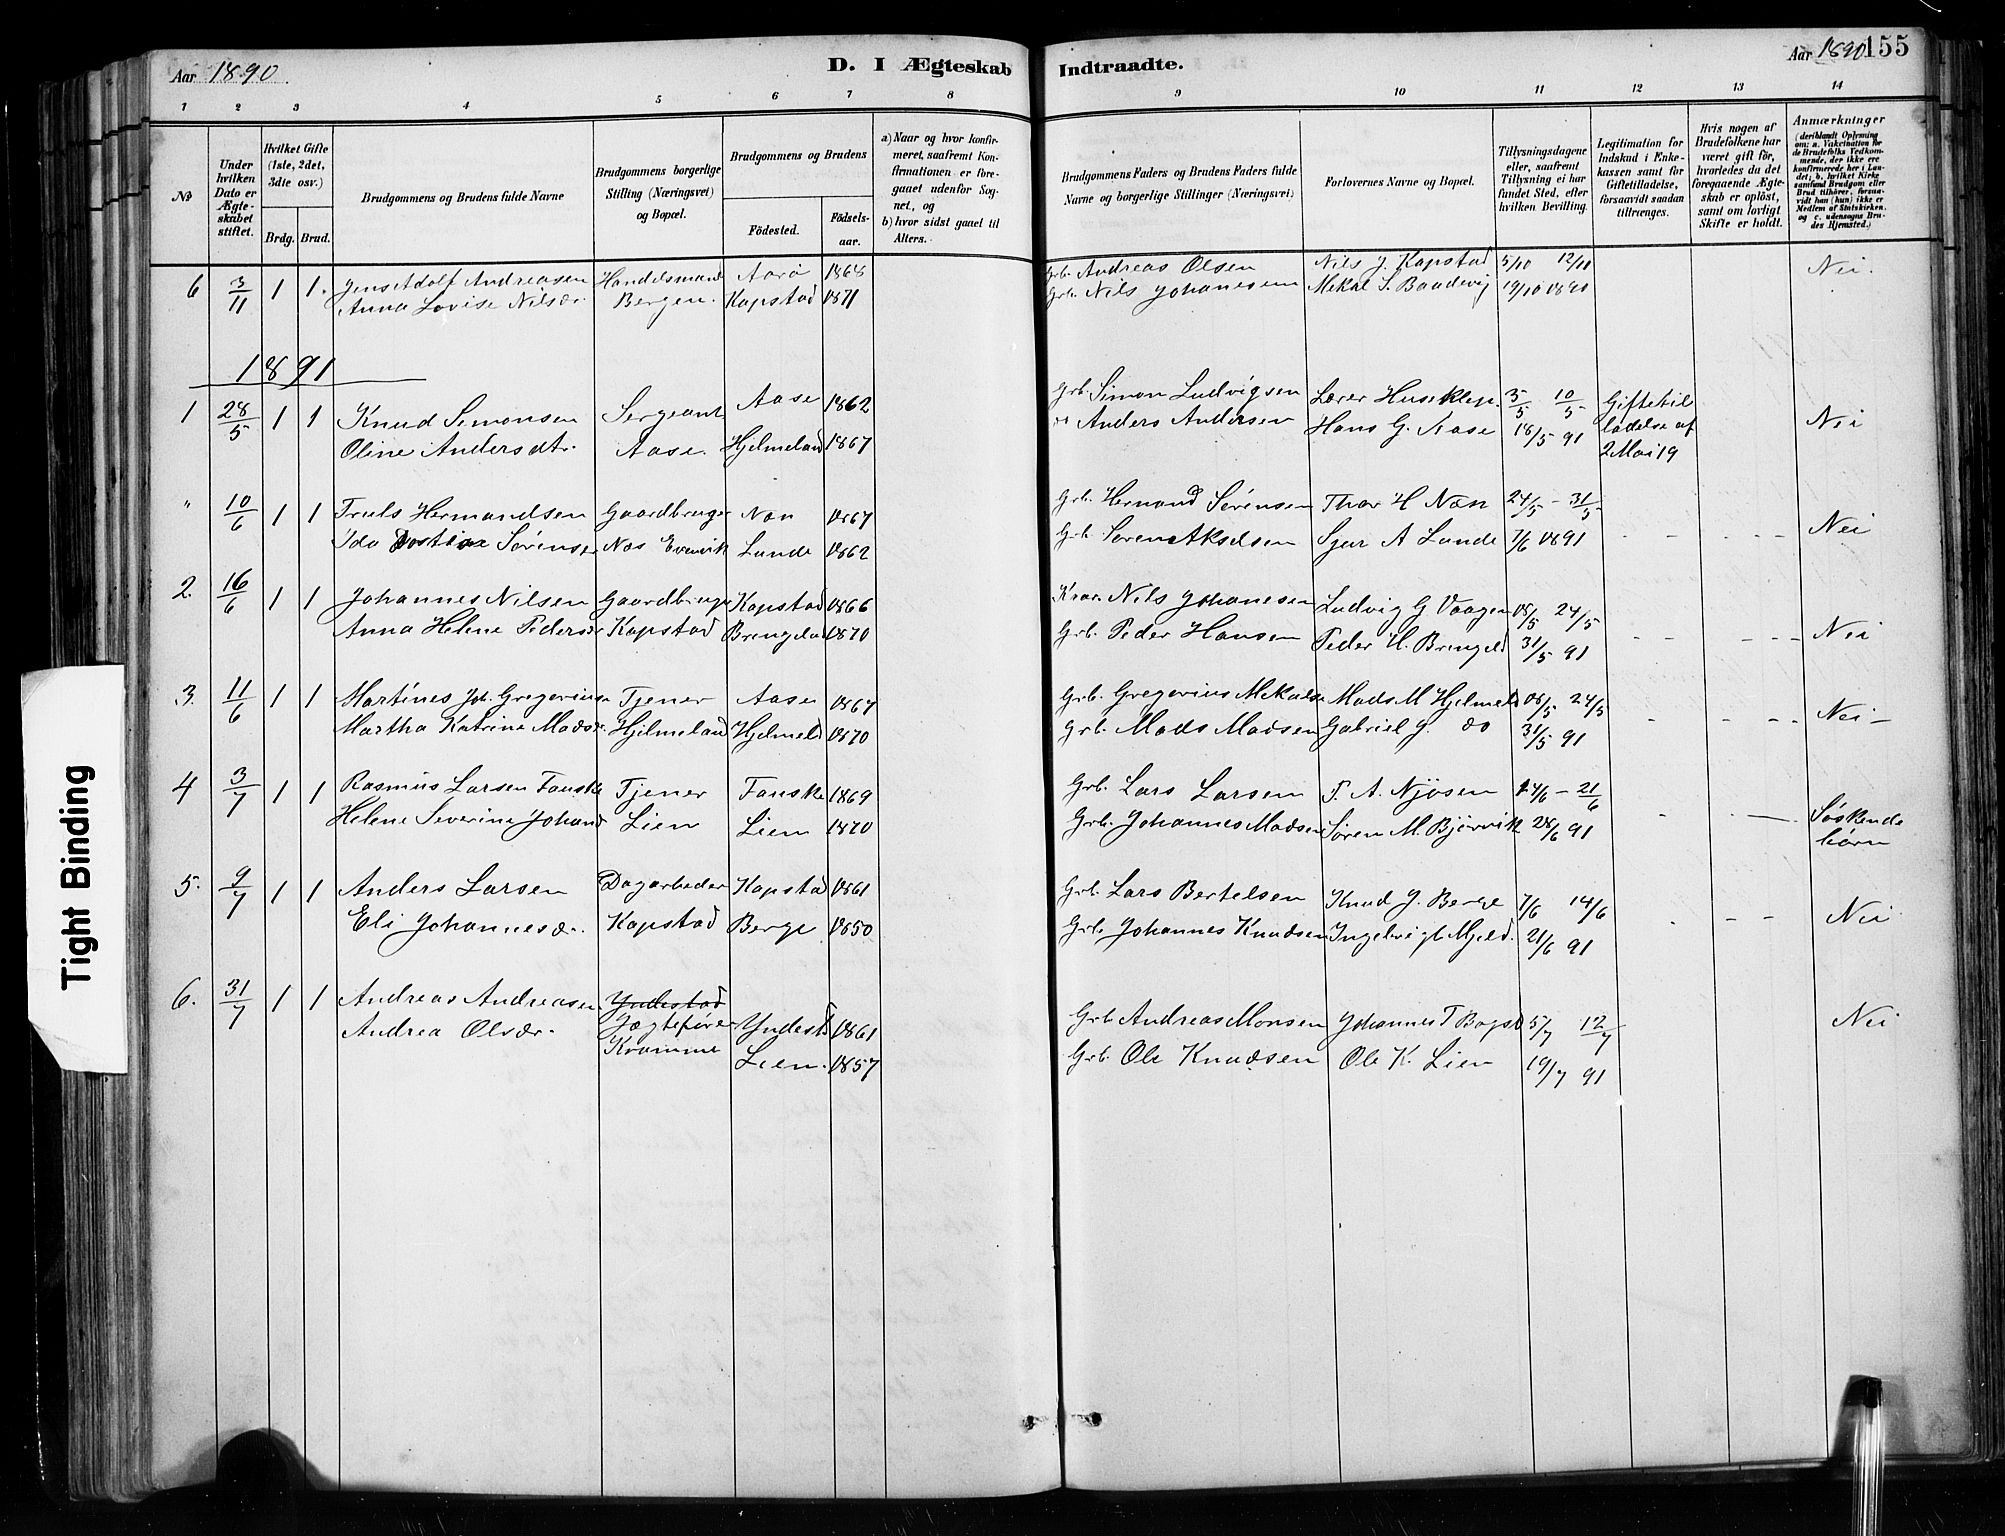 Aar 1890.
D. I Ægteskab Indtraadte.
Aar 1890 155
1 2 3 4 5 6 7 8 9 10 11 12 13 14
№
Under hvilken Dato er Ægteskabet stiftet.
Hvilket Gifte (1ste, 2det, 3dte osv.)
Brdg. Brud.
Brudgommens og Brudens fulde Navne
Brudgommens borgerlige Stilling (Næringsvei) og Bopæl.
Brudgommens og Brudens
Fødested.
Fødselsaar.
a) Naar og hvor konfirmeret, saafremt Konfirmationen er foregaaet udenfor Sognet, og
b) hvor sidst gaaet til Alters.
Brudgommens Faders og Brudens Faders fulde Navne og borgerlige Stillinger (Næringsvei)
Forlovernes Navne og Bopæl.
Tillysningsdagene eller, saafremt Tillysning ei har fundet Sted, efter hvilken Bevilling.
Legitimation for Indskud i Enkekassen samt for Giftetilladelse, forsaavidt saadan tiltrænges.
Hvis nogen af Brudefolkene har været gift før, hvorledes da det foregaaende Ægteskab er opløst, samt om lovligt Skifte er holdt.
Anmærkninger
(deriblandt Oplysning om: a. Vakcination for de Brudefolks Vedkommende, der ikke ere konfirmerede her i Landet; b. hvilket Kirkesamfund Brudgom eller Brud tilhører, forsaavidt han (hun) ikke er Medlem af Statskirken, og c. udensogns Brudes Hjemsted.)
6 3/11 1 1. Jens Adolf Andreasen Handelsmand Aarø 1868 Grb. Andreas Olsen Nils J. Kapstad 5/10 12/10 Nei.
Anna Lovise Nilsdr. Bergen. Kapstad 1871 Grb. Nils Johanesen Mekal S. Baadevig 19/10 1890
1891
1 28/5 1 1 Knud Simonsen Sergeant Aase 1862 Grb. Simon Ludvigsen Lærer Huseklep. 3/5 10/5 Giftetil
Oline Andersdtr. Aase. Hjelmeland 1867 Anders Andersen Hans G. Aase 18/5 91 ladelse af Nei
2 Mai 19
" 10/6 1 1 Truls Hermandsen Gaardbruger Næs 1867 Grb. Hermand Sørensen Thor H Næs 24/5 - 31/5
Ida Sørensdr Næs Evenvik Lunde 1862 Grb. Søren Akselsen Sjur A Lunde 7/6 1891 Nei
2. 16/6 1 1 Johannes Nilsen Gaardbruger Kapstad 1866 Nils Johanesen Ludvig G Vaagen 18/5 24/5
Anna Helene Pedersdr Kapstad Brengeld 1870 Grb. Peder Hansen Peder H. Brengeld 31/5 91 Nei
3. 11/6 1 1 Martines Joh. Gregoriusen Tjener Aase 1867 Grb. Gregorius Mekalse Mads M Hjelmeld 18/5 24/5
Martha Katrine Madsdr. Hjelmeland Hjelmeld 1870 Grb. Mads Madsen Gabriel J. do 31/5 91 Nei -
4 3/7 1 1 Rasmus Larsen Fanske Tjener Fanske 1869 Grb. Lars Larsen T. A. Njøsen 14/6 - 21/6
Helene Severine Johansd Lien Lien 1870 Grb. Johannes Madsen Søren M. Bjørvik 28/6 91 Søskende
børn
5. 9/7 1 1 Anders Larsen Dagarbeder Kapstad 1861 Grb. Lars Bertelsen Knud J. Berge 7/6 14/6
Eli Johannesdr. Kapstad Berge 1850 Grb. Johannes Knudsen Ingelvigt Mjeld. 21/6 91 Nei
6. 31/7 1 1 Andreas Andreasen Yndestad
Andrea Olsdr. Jægtefører Yndestd 1861 Grb. Andreas Monsen Johannes T Bogst 5/7 12/7 Nei
Kromme Lien. 1857 Grb. Ole Knudsen Ole K. Lien 19/7 91
Tight Binding